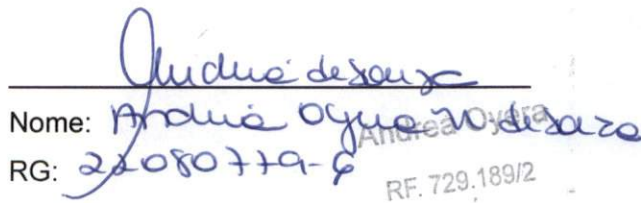 Andréa de Souza
Nome: Andréa Oyera N de Souza
Andrea Oyera
RG: 22080779-6
RF. 729.189/2